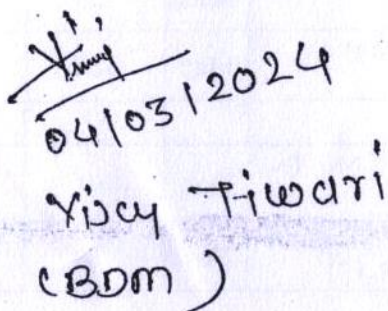 04/03/2024
Vijay Tiwari
(BDM)